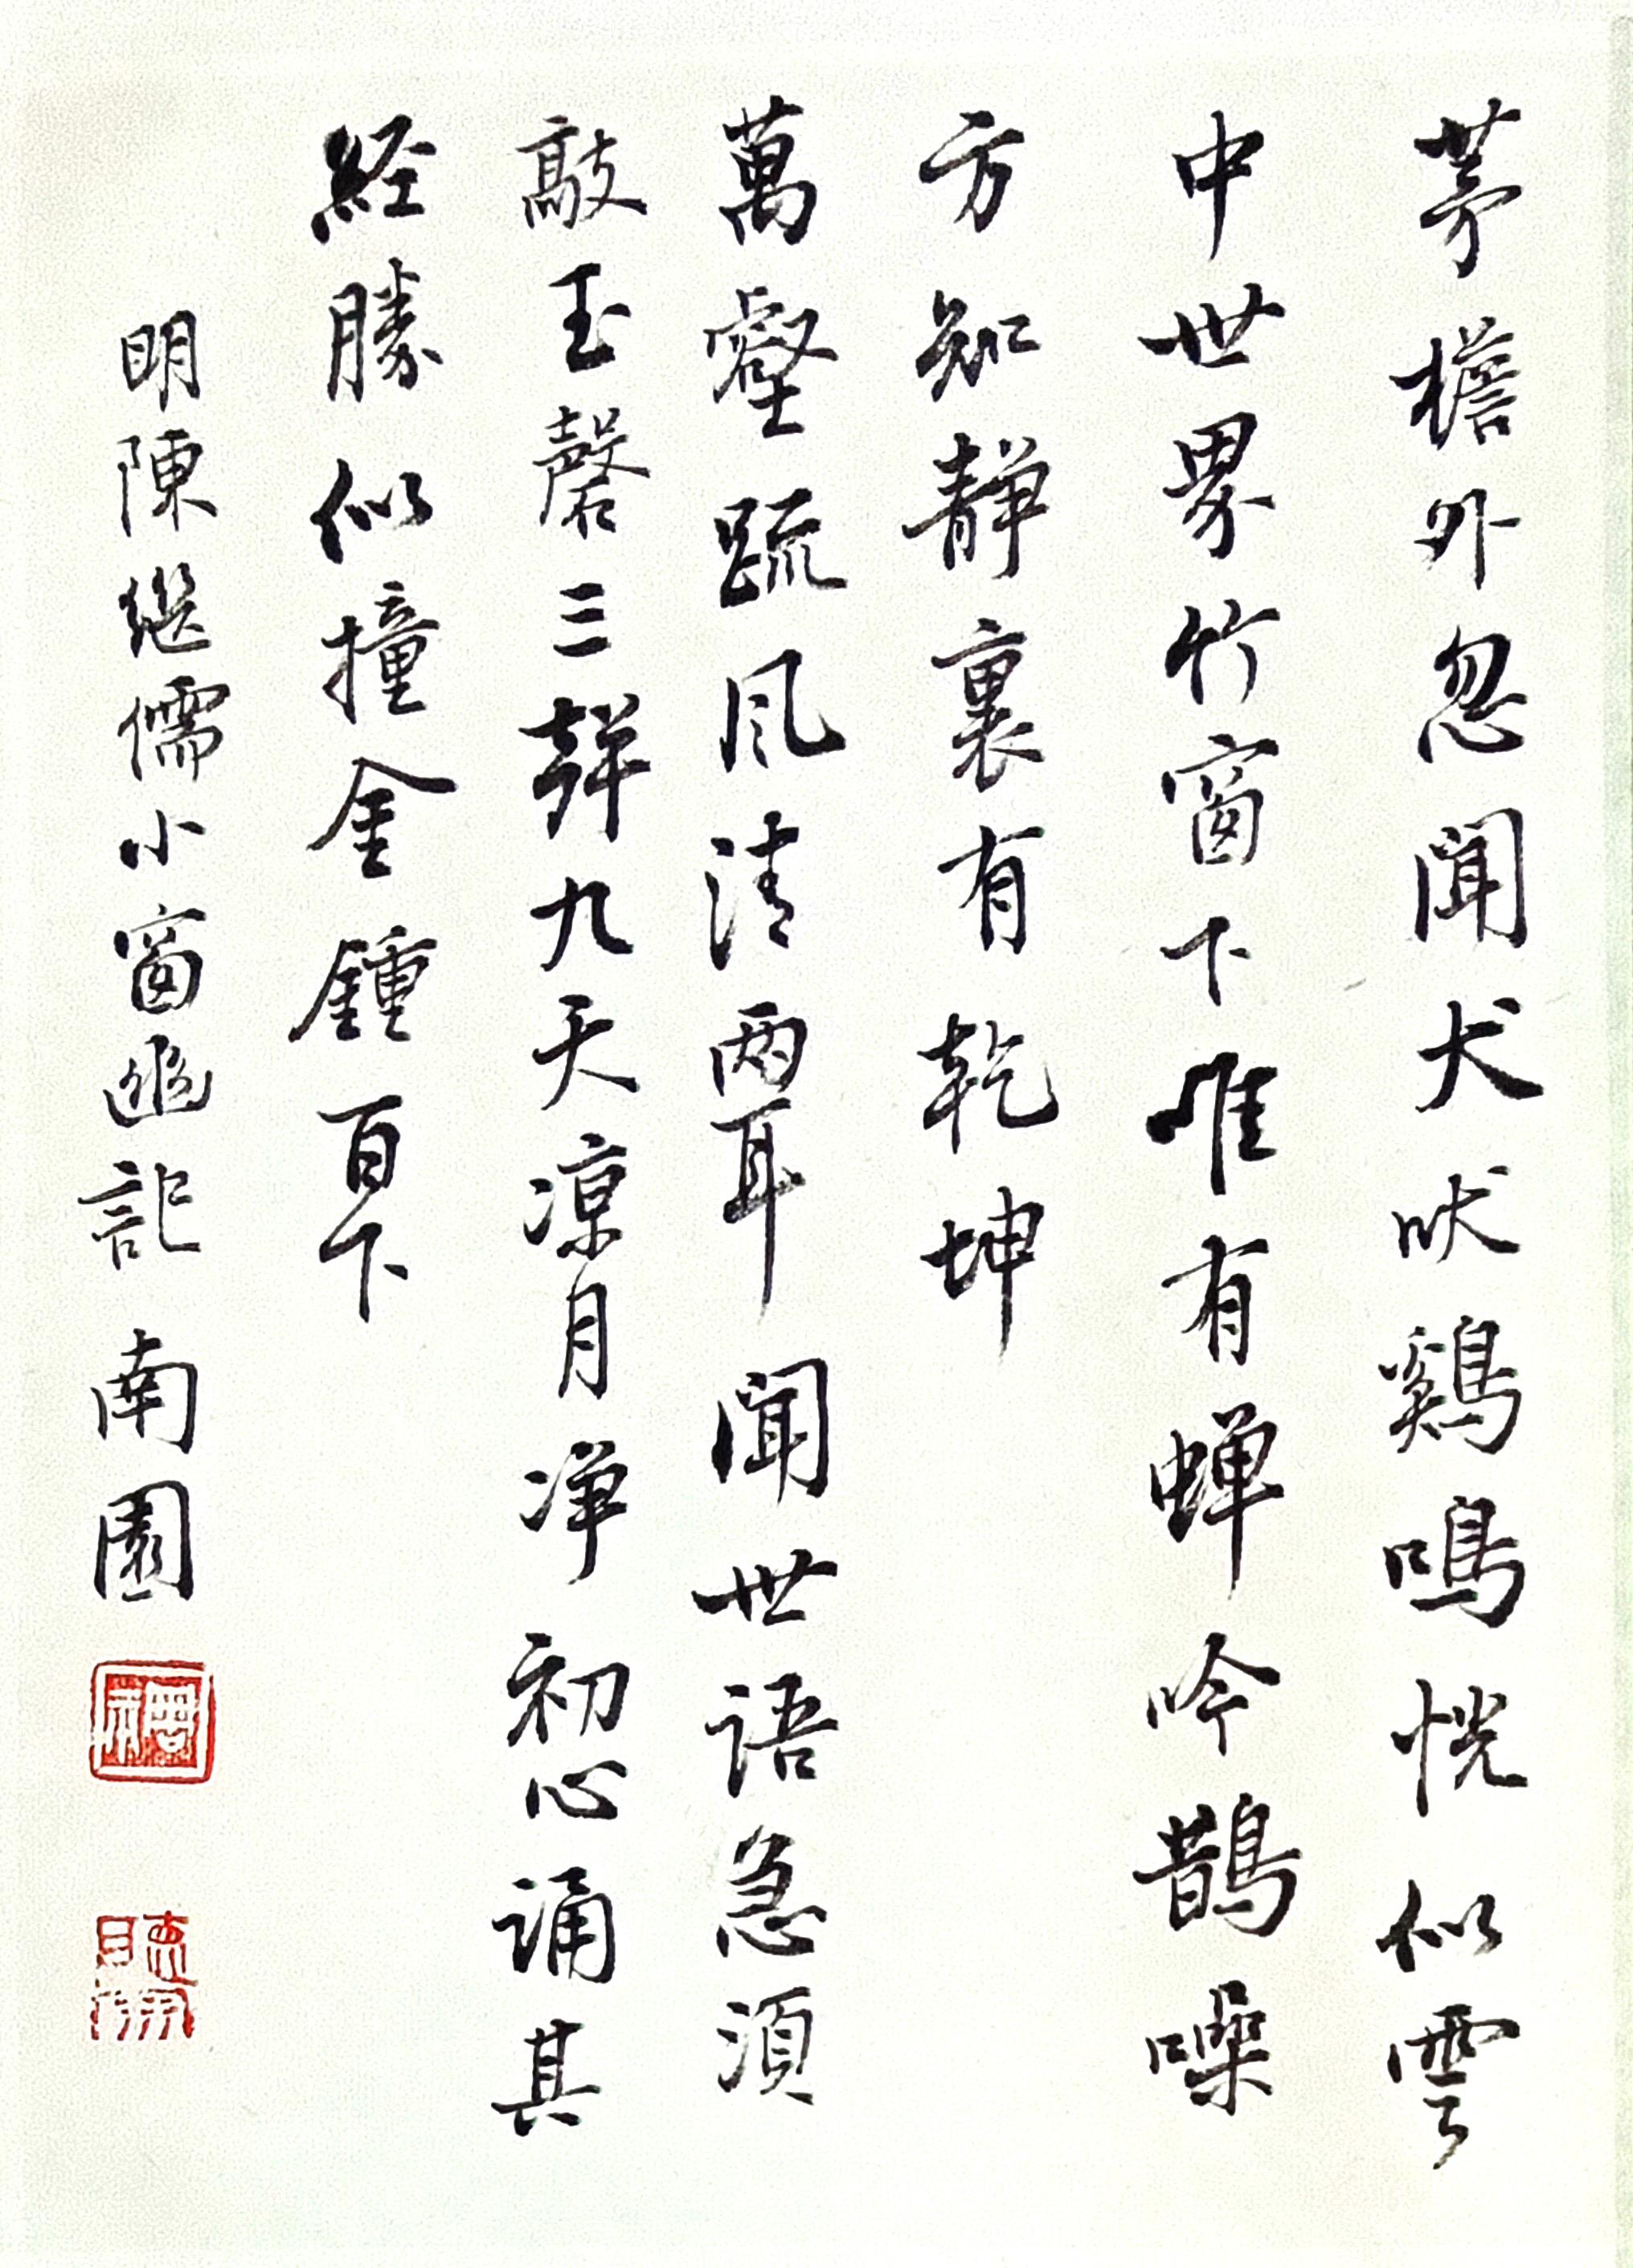 茅檐外忽聞犬吠鷄鳴恍似雲
中世界竹窗下唯有蝉吟鵲噪
方知靜裏有乾坤
萬壑疏风清两耳聞世语急須
敲玉磬三聲九天凉月净初心诵其
経勝似撞金鍾百下
明陳继儒小窗幽記南園